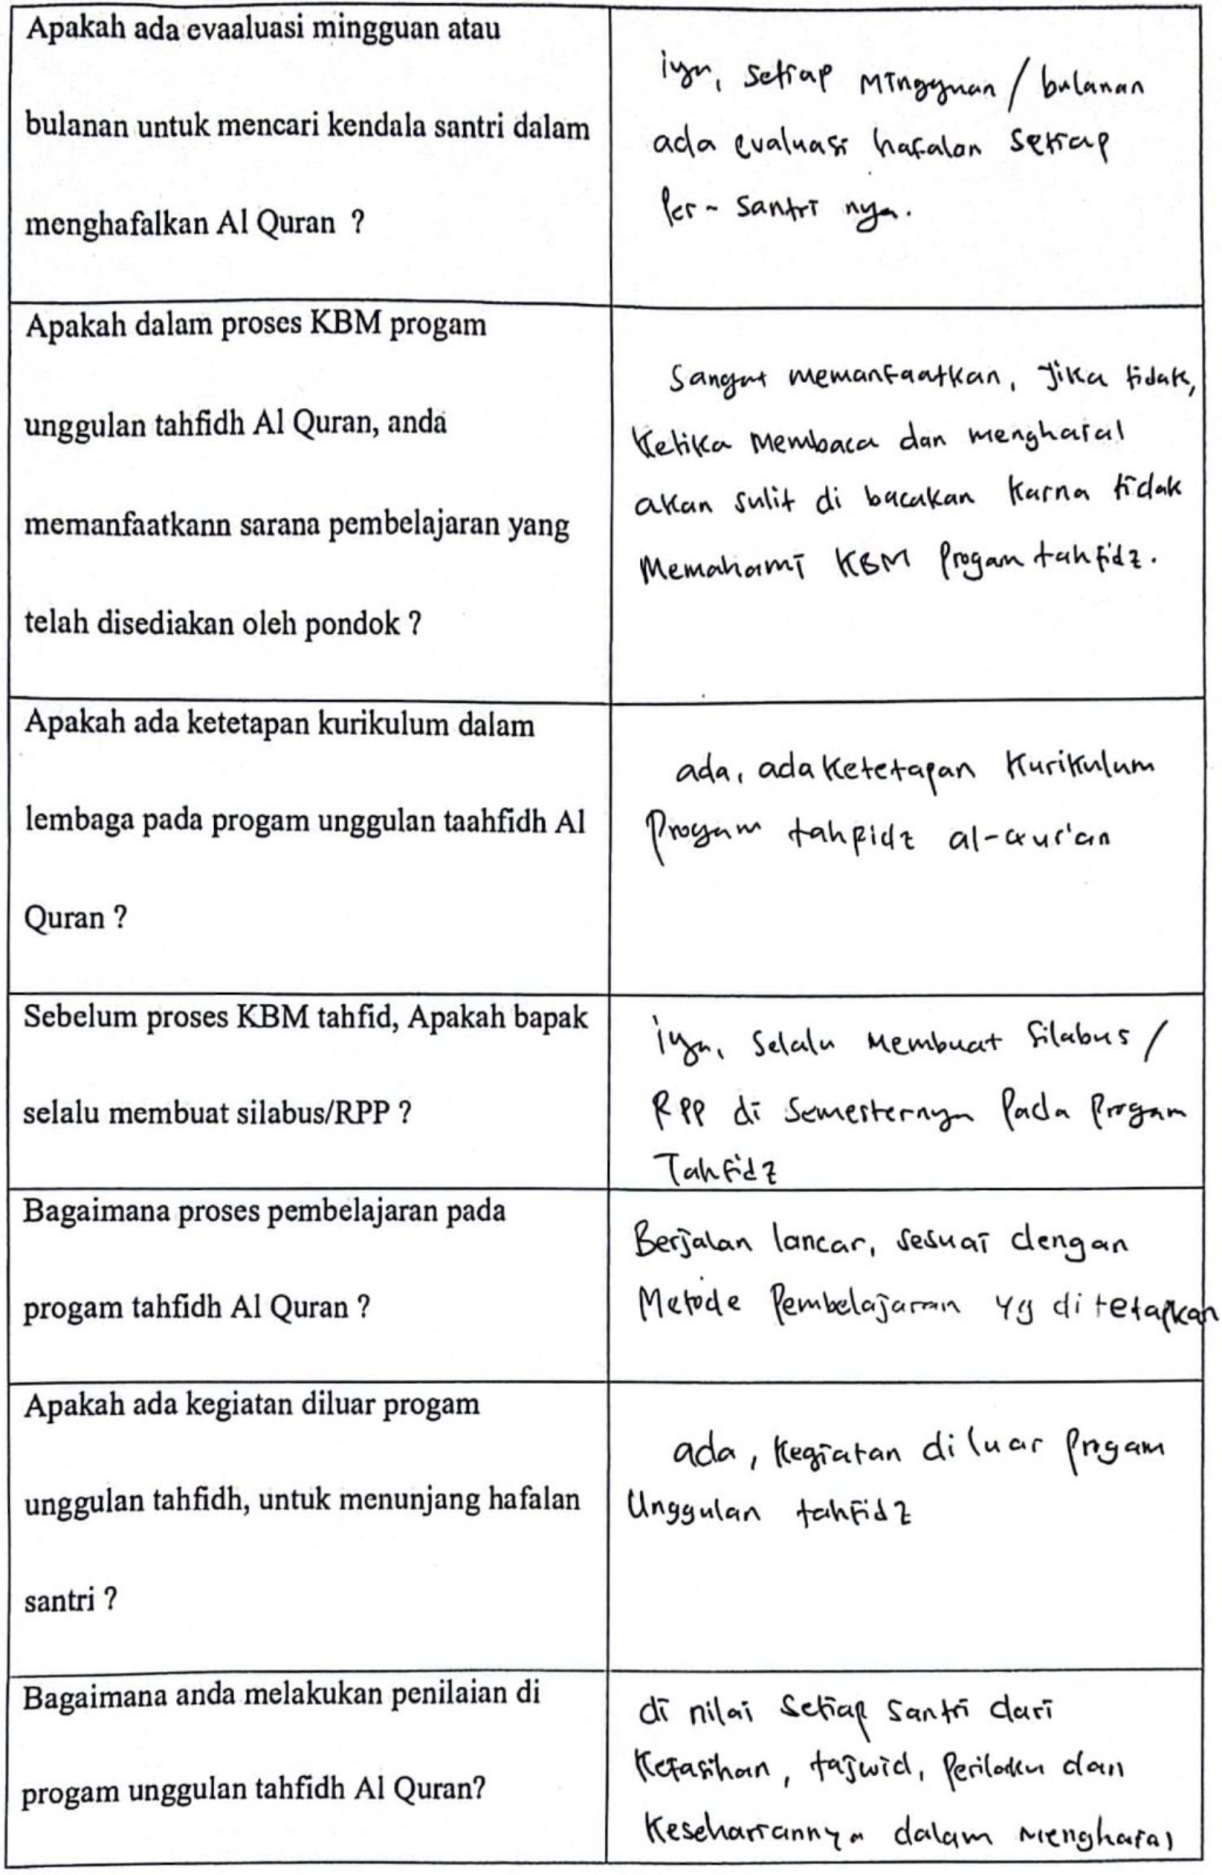 Apakah ada evaaluasi mingguan atau
bulanan untuk mencari kendala santri dalam
menghafalkan Al Quran ?
iya, setiap mingguan / bulanan
ada evaluasi hafalan setiap
per - santri nya.
Apakah dalam proses KBM progam
unggulan tahfidh Al Quran, anda
memanfaatkann sarana pembelajaran yang
telah disediakan oleh pondok ?
Sangat memanfaatkan, Jika tidak,
Ketika Membaca dan menghafal
akan sulit di bacakan karna tidak
Memahami KBM Progam tahfidz.
Apakah ada ketetapan kurikulum dalam
lembaga pada progam unggulan taahfidh Al
Quran ?
ada, ada Ketetapan Kurikulum
Progam tahfidz al-qur'an
Sebelum proses KBM tahfid, Apakah bapak
selalu membuat silabus/RPP ?
iya, Selalu Membuat Silabus /
RPP di Semesternya Pada Progam
Tahfidz
Bagaimana proses pembelajaran pada
progam tahfidh Al Quran ?
Berjalan lancar, sesuai dengan
Metode Pembelajaran yg di tetapkan
Apakah ada kegiatan diluar progam
unggulan tahfidh, untuk menunjang hafalan
santri ?
ada, Kegiatan di luar Progam
Unggulan tahfidz
Bagaimana anda melakukan penilaian di
progam unggulan tahfidh Al Quran?
di nilai Setiap Santri dari
Kefasihan, tajwid, Perilaku dan
Kesehariannya dalam Menghafal